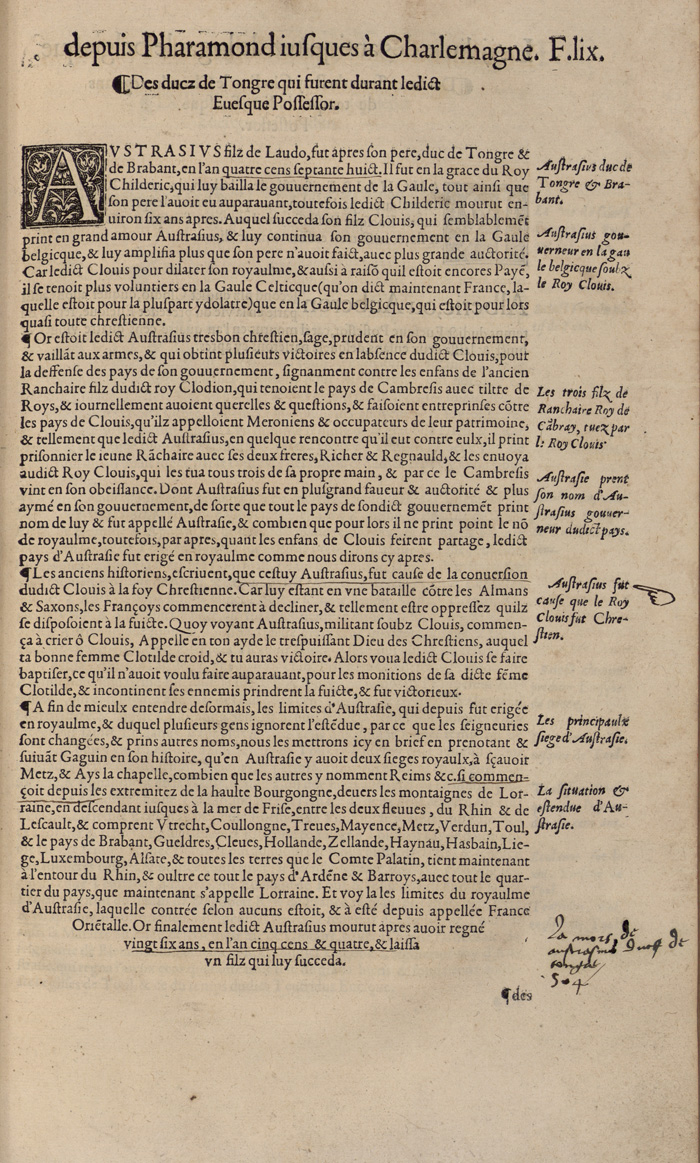 depuis Pharamond iuſques à Charlemagne. F.lix.
¶Des ducz de Tongre qui furent durant ledict
Eueſque Poſſeſſor.
AVSTRASIVS filz de Laudo,fut apres ſon pere,duc de Tongre &
de Brabant,en l'an quatre cens ſeptante huict.Il fut en la grace du Roy
Childeric,qui luy bailla le gouuernement de la Gaule, tout ainſi que
ſon pere l'auoit eu auparauant,toutefois ledict Childeric mourut en-
uiron ſix ans apres. Auquel ſucceda ſon filz Clouis, qui ſemblablemẽt
print en grand amour Auſtraſius, & luy continua ſon gouuernement en la Gaule
belgicque,& luy amplifia plus que ſon pere n'auoit faict,auec plus grande auctorité.
Car ledict Clouis pour dilater ſon royaulme,& auſsi à raiſõ quil eſtoit encores Payẽ,
il ſe tenoit plus voluntiers en la Gaule Celticque(qu'on dict maintenant France, la-
quelle eſtoit pour la pluſpart ydolatre)que en la Gaule belgicque,qui eſtoit pour lors
quaſi toute chreſtienne.
Auſtraſius duc de
Tongre & Bra-
bant.
Auſtraſius gou-
uerneur en la gau
le belgicque ſoubz
le Roy Clouis.
¶ Or eſtoit ledict Auſtraſius tresbon chreſtien,ſage,prudent en ſon gouuernement,
& vaillãt aux armes,& qui obtint pluſieurs victoires en labſence dudict Clouis,pour
la deffenſe des pays de ſon gouuernement, ſignanment contre les enfans de l'ancien
Ranchaire filz dudict roy Clodion,qui tenoient le pays de Cambreſis auec tiltre de
Roys,& iournellement auoient querelles & queſtions,& faiſoient entreprinſes cõtre
les pays de Clouis,qu'ilz appelloient Meroniens & occupateurs de leur patrimoine,
& tellement que ledict Auſtraſius,en quelque rencontre qu'il eut contre eulx,il print
priſonnier le ieune Rãchaire auec ſes deux freres,Richer & Regnauld,& les enuoya
audict Roy Clouis,qui les tua tous trois de ſa propre main, & par ce le Cambreſis
vint en ſon obeiſſance. Dont Auſtraſius fut en pluſgrand faueur & auctorité & plus
aymé en ſon gouuernement,de ſorte que tout le pays de ſondict gouuernemẽt print
nom de luy & fut appellé Auſtraſie,& combien que pour lors il ne print point le nõ
de royaulme,toutefois,par apres,quant les enfans de Clouis feirent partage, ledict
pays d'Auſtraſie fut erigé en royaulme comme nous dirons cy apres.
Les trois filz de
Ranchaire Roy de
Cãbray, tuez par
le Roy Clouis.
Auſtraſie prent
ſon nom d'Au-
ſtraſius gouuer-
neur dudict pays.
¶Les anciens hiſtoriens,eſcriuent,que ceſtuy Auſtraſius,fut cauſe de la conuerſion
dudict Clouis à la foy Chreſtienne. Car luy eſtant en vne bataille cõtre les Almans
& Saxons,les Françoys commencerent à decliner, & tellement eſtre oppreſſez quilz
ſe diſpoſoient à la fuicte. Quoy voyant Auſtraſius,militant ſoubz Clouis, commen-
ça à crier ô Clouis, Appelle en ton ayde le treſpuiſſant Dieu des Chreſtiens, auquel
ta bonne femme Clotilde croid,& tu auras victoire. Alors voua ledict Clouis ſe faire
baptiſer,ce qu'il n'auoit voulu faire auparauant,pour les monitions de ſa dicte fẽme
Clotilde,& incontinent ſes ennemis prindrent la fuicte,& fut victorieux.
Auſtraſius fut
cauſe que le Roy
Clouis fut Chre-
ſtien.
¶ A fin de mieulx entendre deſormais, les limites d'Auſtraſie, qui depuis fut erigée
en royaulme,& duquel pluſieurs gens ignorent l'eſtẽdue , par ce que les ſeigneuries
ſont changées,& prins autres noms,nous les mettrons icy en brief en prenotant &
ſuiuãt Gaguin en ſon hiſtoire, qu'en Auſtraſie y auoit deux ſieges royaulx,à ſçauoir
Metz,& Ays la chapelle,combien que les autres y nomment Reims &c.ſi commen-
çoit depuis les extremitez de la haulte Bourgongne,deuers les montaignes de Lor-
raine,en deſcendant iuſques à la mer de Friſe,entre les deux fleuues , du Rhin & de
Leſcault,& comprent Vtrecht,Coullongne,Treues,Mayence,Metz,Verdun,Toul,
& le pays de Brabant,Gueldres,Cleues,Hollande,Zellande,Haynau,Haſbain,Lie-
ge,Luxembourg,Alſate,& toutes les terres que le Comte Palatin, tient maintenant
à l'entour du Rhin,& oultre ce tout le pays d'Ardẽne & Barroys,auec tout le quar-
tier du pays,que maintenant s'appelle Lorraine. Et voy la les limites du royaulme
d'Auſtraſie, laquelle contrée ſelon aucuns eſtoit, & à eſté depuis appellée France
Oriẽtalle.Or finalement ledict Auſtraſius mourut apres auoir regné
vingt ſix ans, en l'an cinq cens & quatre,& laiſſa
vn filz qui luy ſucceda.
Les principaulx
ſiege d'Auſtraſie.
La ſituation &
eſtendue d'Au-
ſtraſie.
La mors de
auſtraſius Duck de
tongre
504
¶des